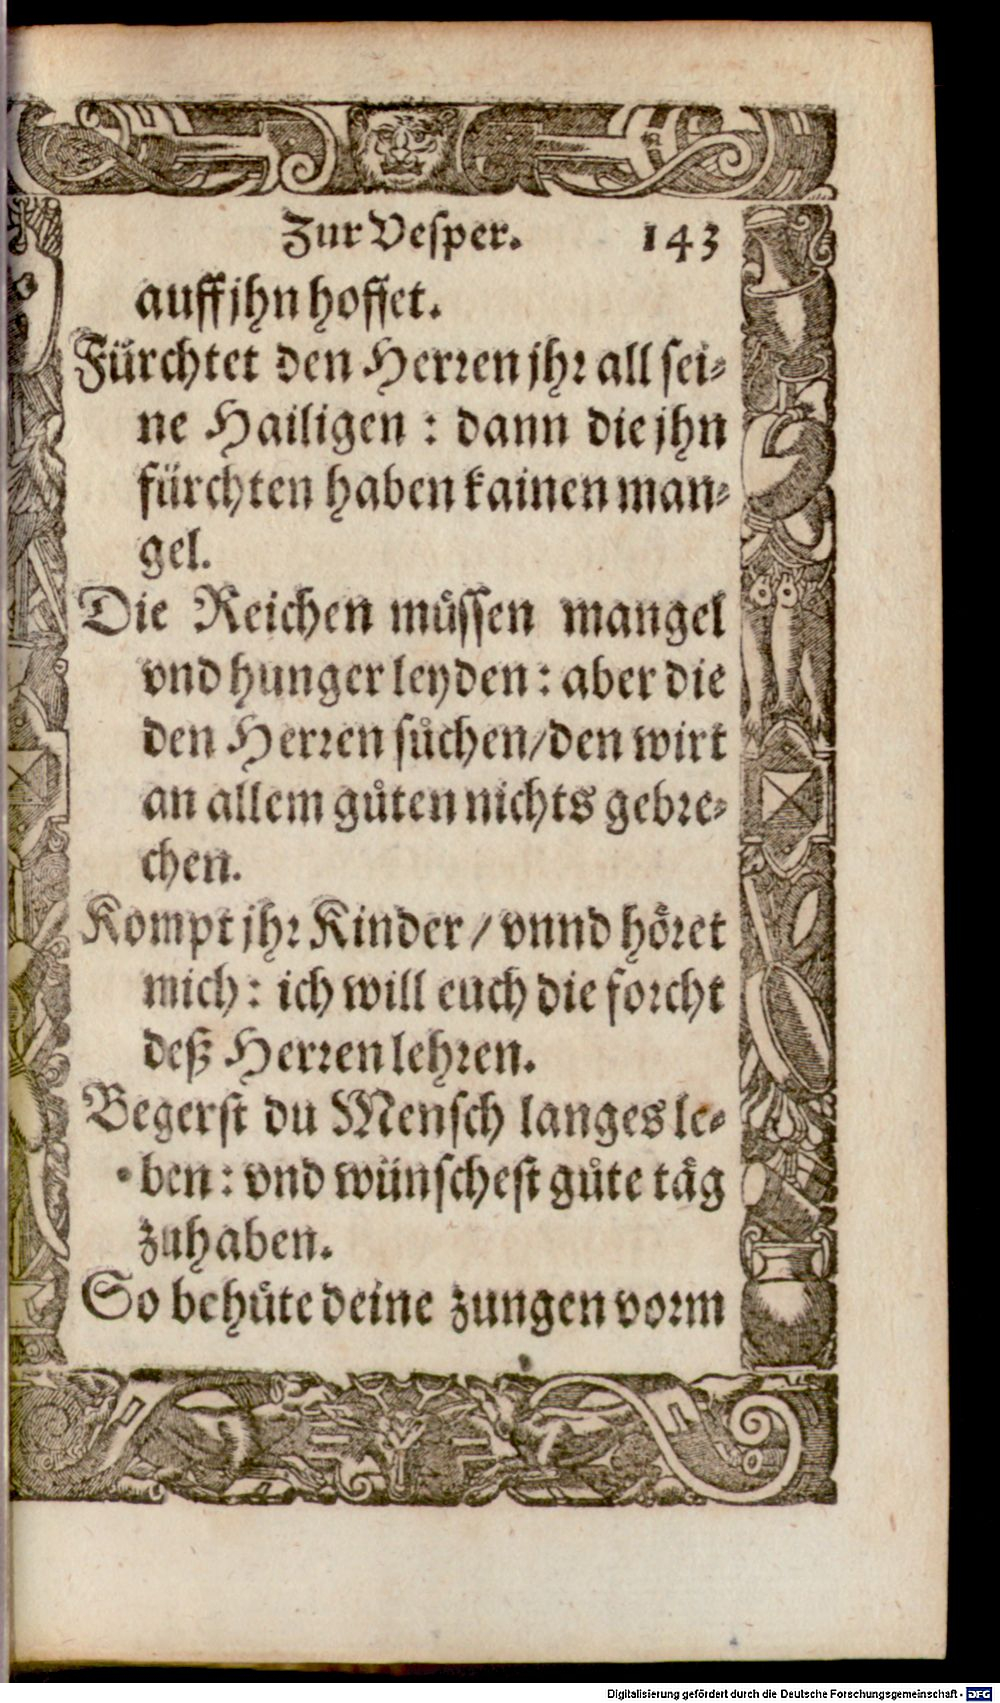 Zur Vesper. 143
auff jhn hoffet.
Fürchtet den Herren jhr all sei⸗
ne Hailigen : dann die jhn
fürchten haben kainen man⸗
gel.
Die Reichen müssen mangel
vnd hunger leyden : aber die
den Herren sůchen/den wirt
an allem gůten nichts gebre⸗
chen.
Kompt jhr Kinder / vnnd höret
mich : ich will euch die forcht
deß Herren lehren.
Begerst du Mensch langes le⸗
ben : vnd wünschest gůte täg
zuhaben.
So behüte deine zungen vorm
Digitalisierung gefördert durch die Deutsche Forschungsgemeinschaft - DFG